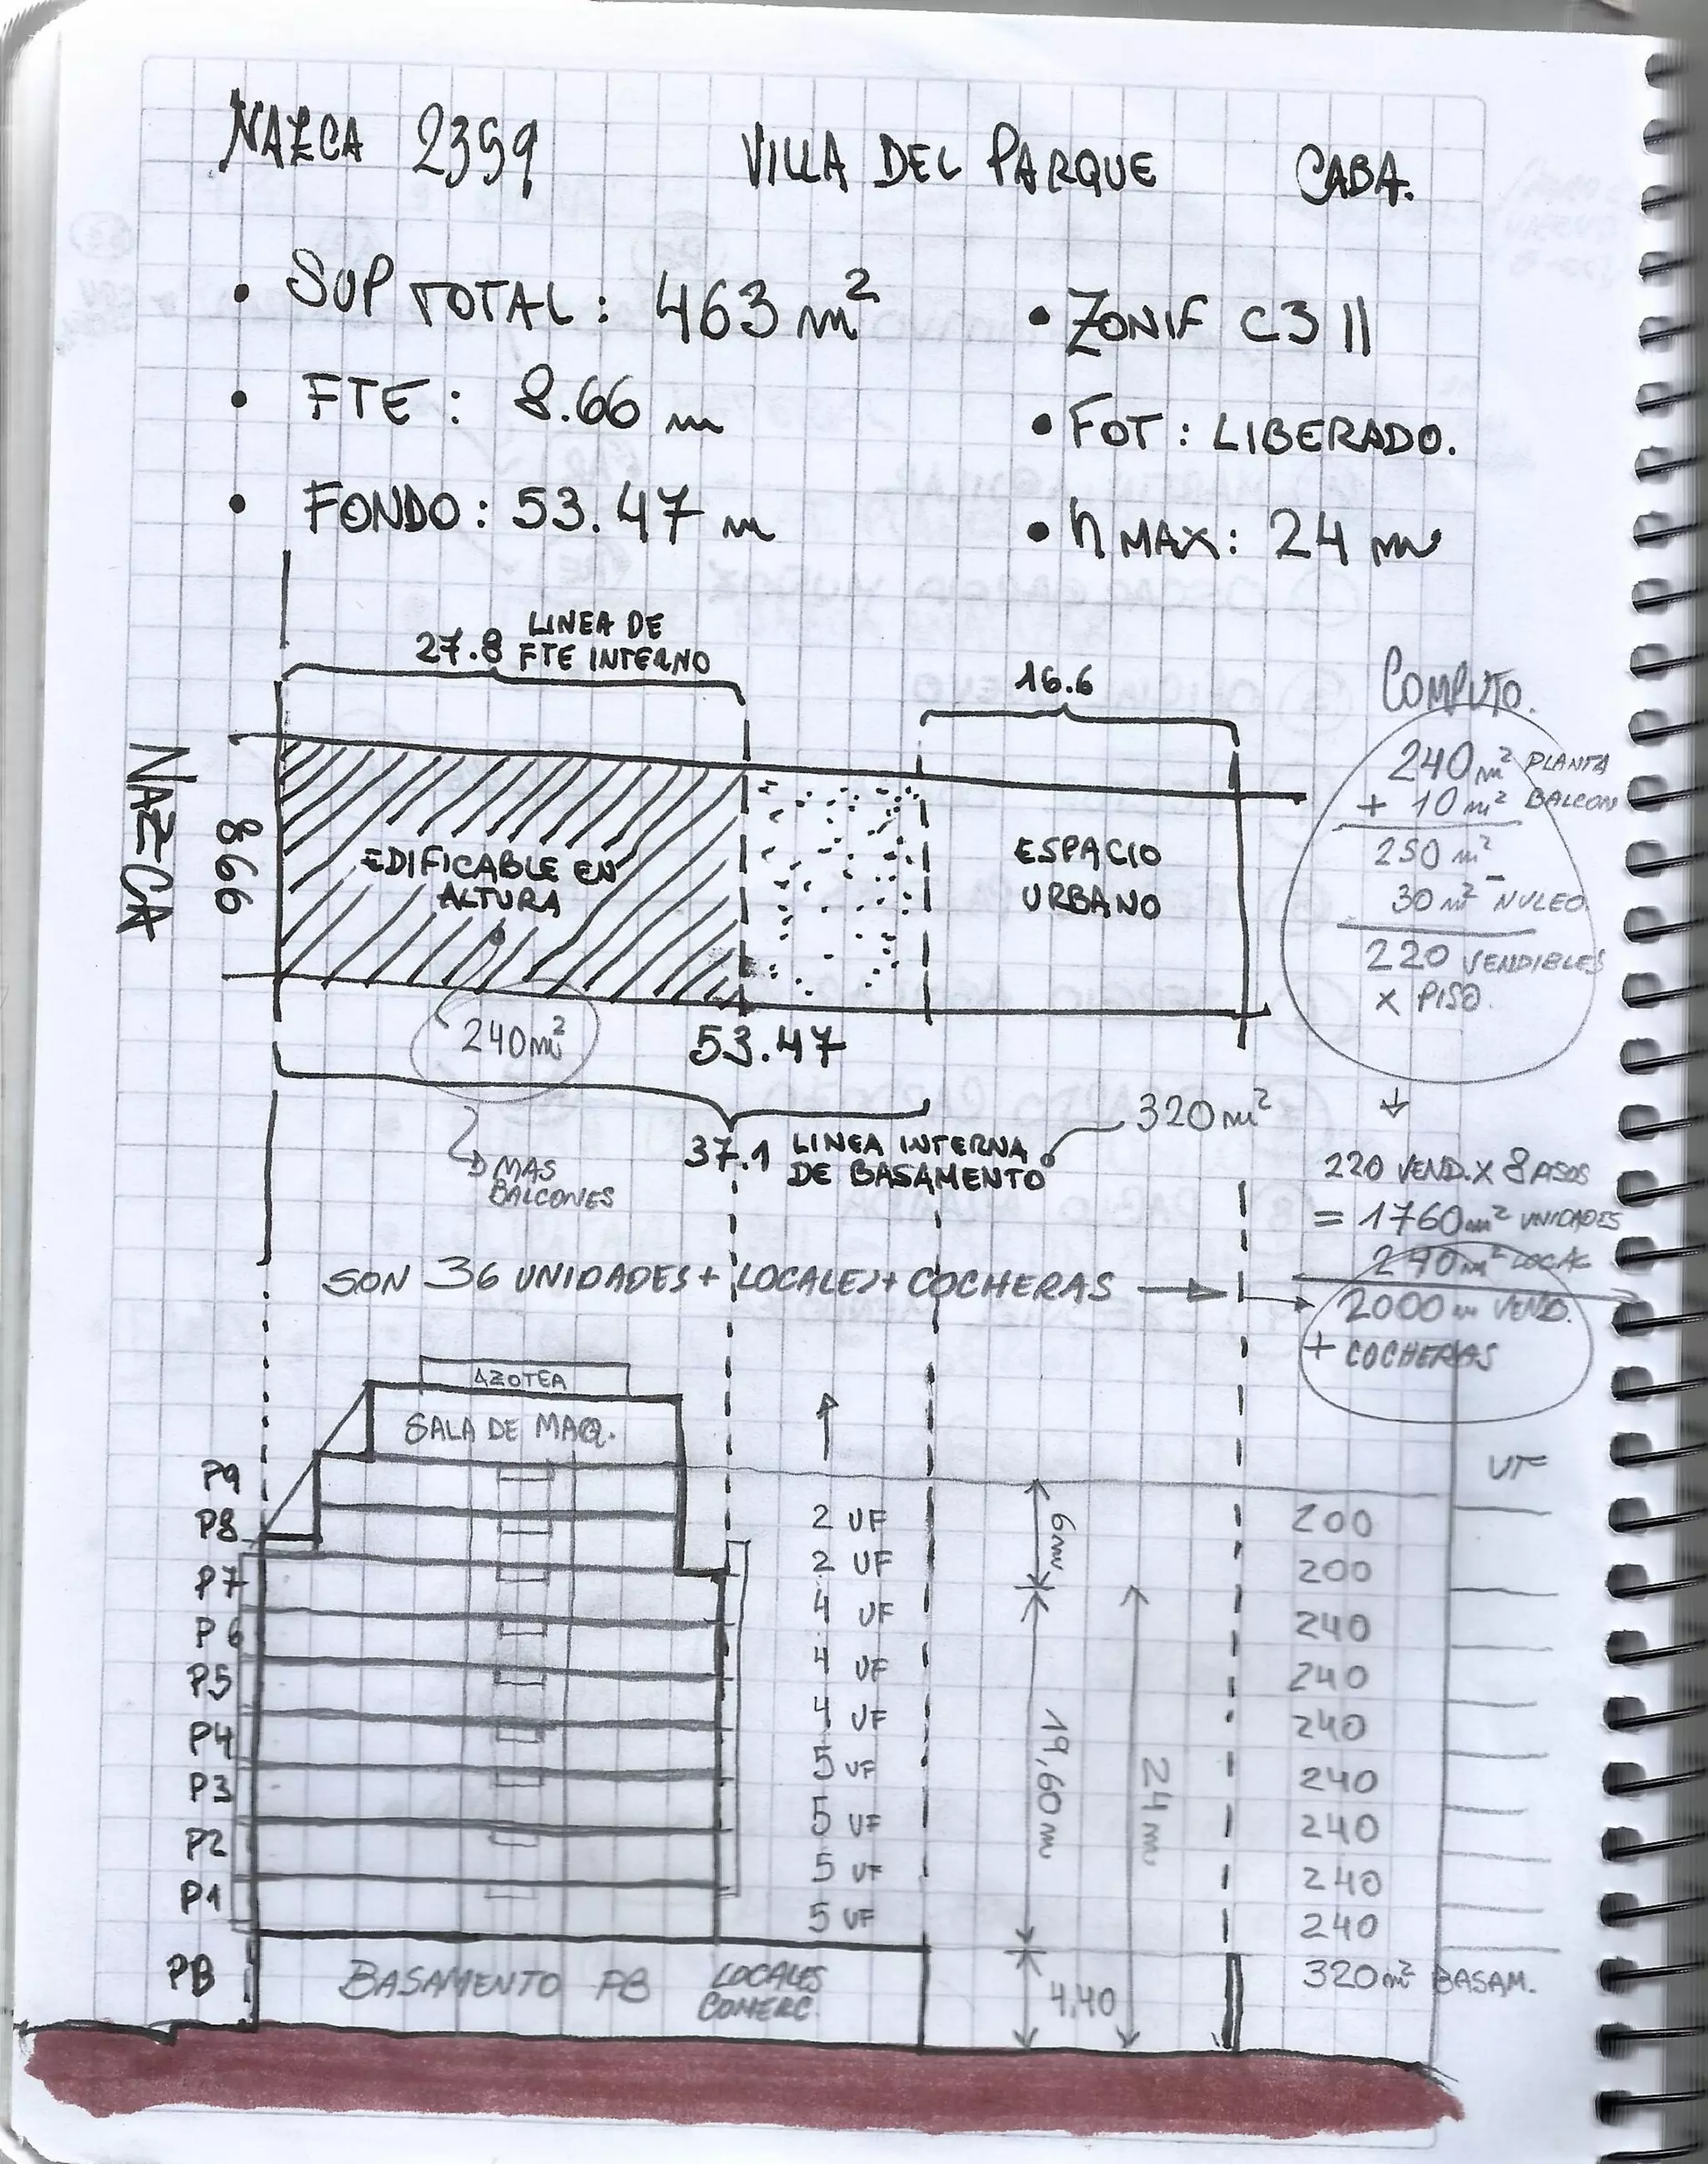 NAZCA 2359 VILLA DEL PARQUE CABA.
• SUP TOTAL: 463 m²
• ZONIF C3 II
• FTE: 8.66 m
• FOT: LIBERADO.
• FONDO: 53.47 m
• h MAX: 24 m
27.8 LINEA DE
FTE INTERNO
16.6
COMPUTO.
NAZCA
866
EDIFICABLE EN
ALTURA
ESPACIO
URBANO
240 m² PLANTA
+ 10 m² BALCON
250 m²
- 30 m² NUCLEO
220 VENDIBLES
X PISO.
240m²
53.47
MAS
BALCONES
37.1 LINEA INTERNA
DE BASAMENTO
320 m²
220 VEND. X 8 PISOS
= 1760 m² UNIDADES
240 m² LOCAL
2000 m VEND.
+ COCHERAS
SON 36 UNIDADES + LOCALES + COCHERAS
AZOTEA
SALA DE MAQ.
UF
P9
P8 2 UF 200
P7 2 UF 200
P6 4 UF 240
P5 4 UF 240
P4 4 UF 240
P3 5 UF 240
P2 5 UF 240
P1 5 UF 240
5 UF 240
6m
19,60 m
24 m
PB BASAMENTO PB LOCALES
COMERC.
4,40
320 m² BASAM.